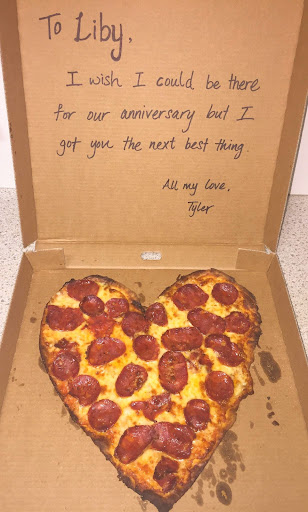 To Liby,
I wish I could be there
for our anniversary but I
got you the next best thing.
All my love,
Tyler